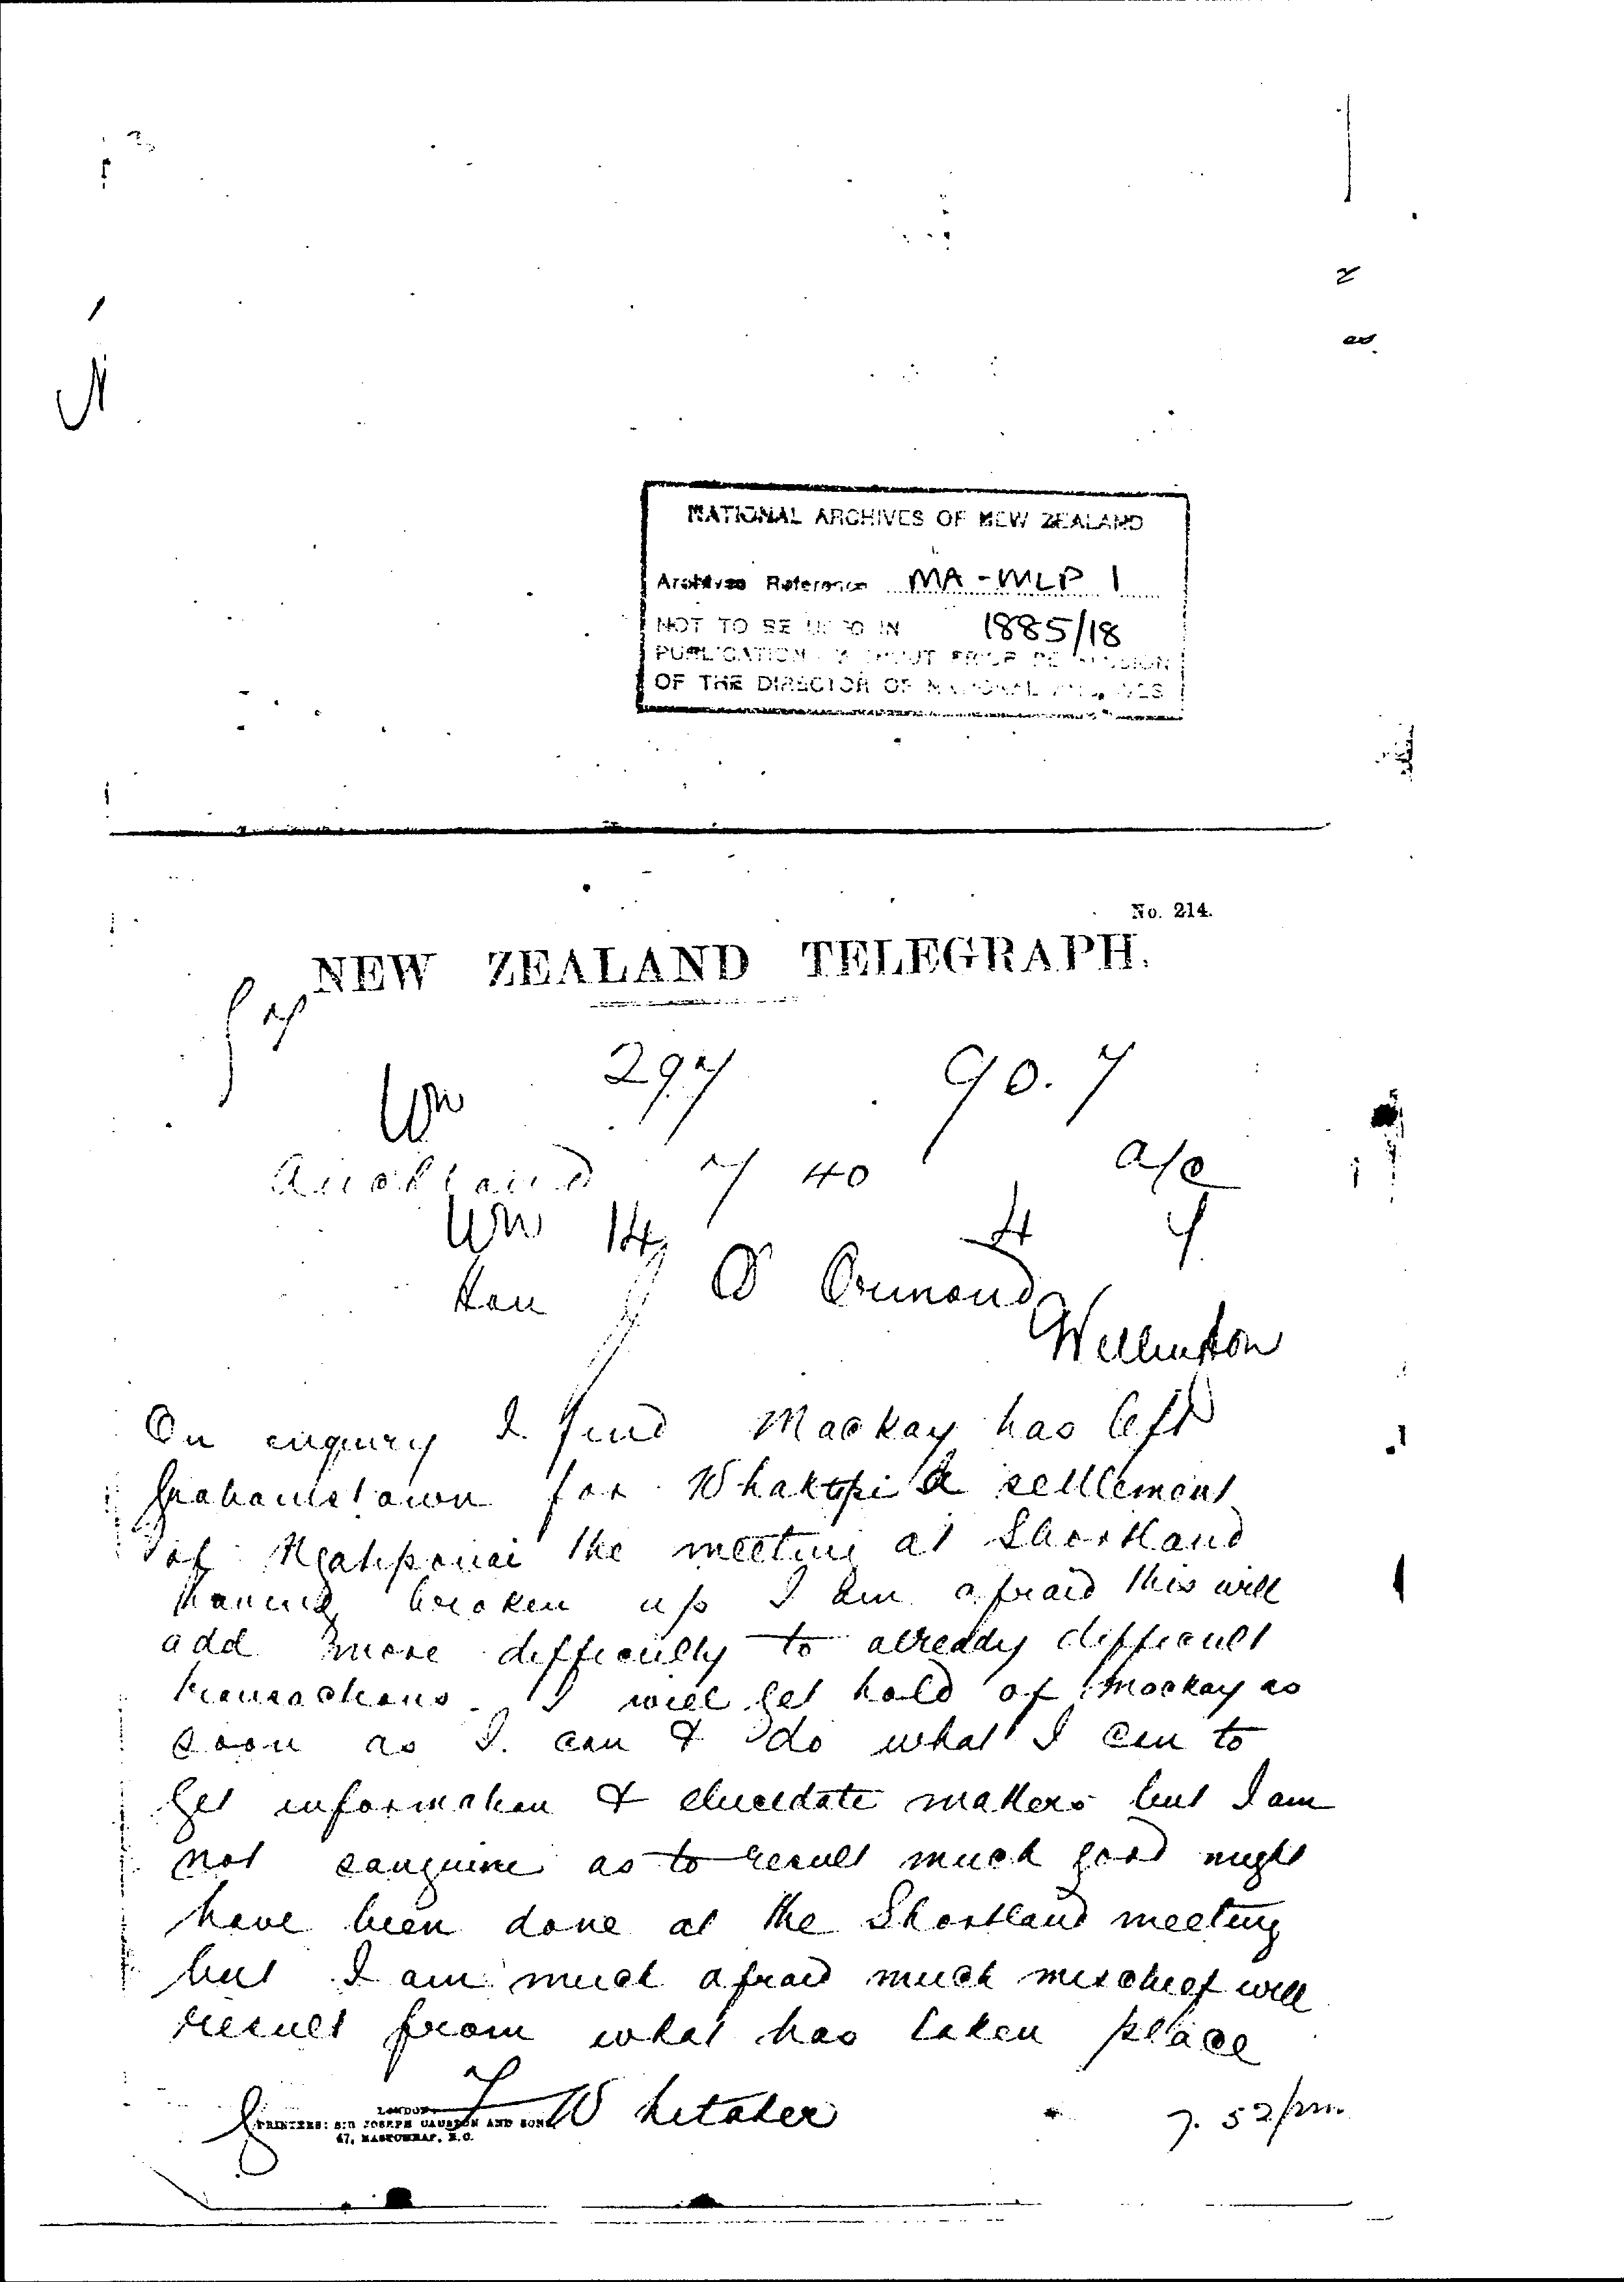 NATIONAL ARCHIVES OF NEW ZEALAND
Archives Reference MA-MLP 1
NOT TO BE USED IN 1885/18
PUBLICATION WITHOUT PRIOR PERMISSION
OF THE DIRECTOR OF NATIONAL ARCHIVES
No. 214.
NEW ZEALAND TELEGRAPH.
297 90.7
Wn
Auckland 7 40 a/c
Wn 14 4 7
Hon J D Ormond
Wellington
On enquiry I find Mackay has left
Grahamstown for a settlement
of the meeting at Shortland
having broken up I am afraid this will
add more difficulty to already difficult
transactions. I will get hold of Mackay as
soon as I can & do what I can to
get information & elucidate matters but I am
not sanguine as to result much good might
have been done at the Shortland meeting
but I am much afraid much mischief will
result from what has taken place
F Whitaker
7.52 pm
LONDON:
PRINTERS: SIR JOSEPH CAUSTON AND SONS
47, EASTCHEAP, E.C.